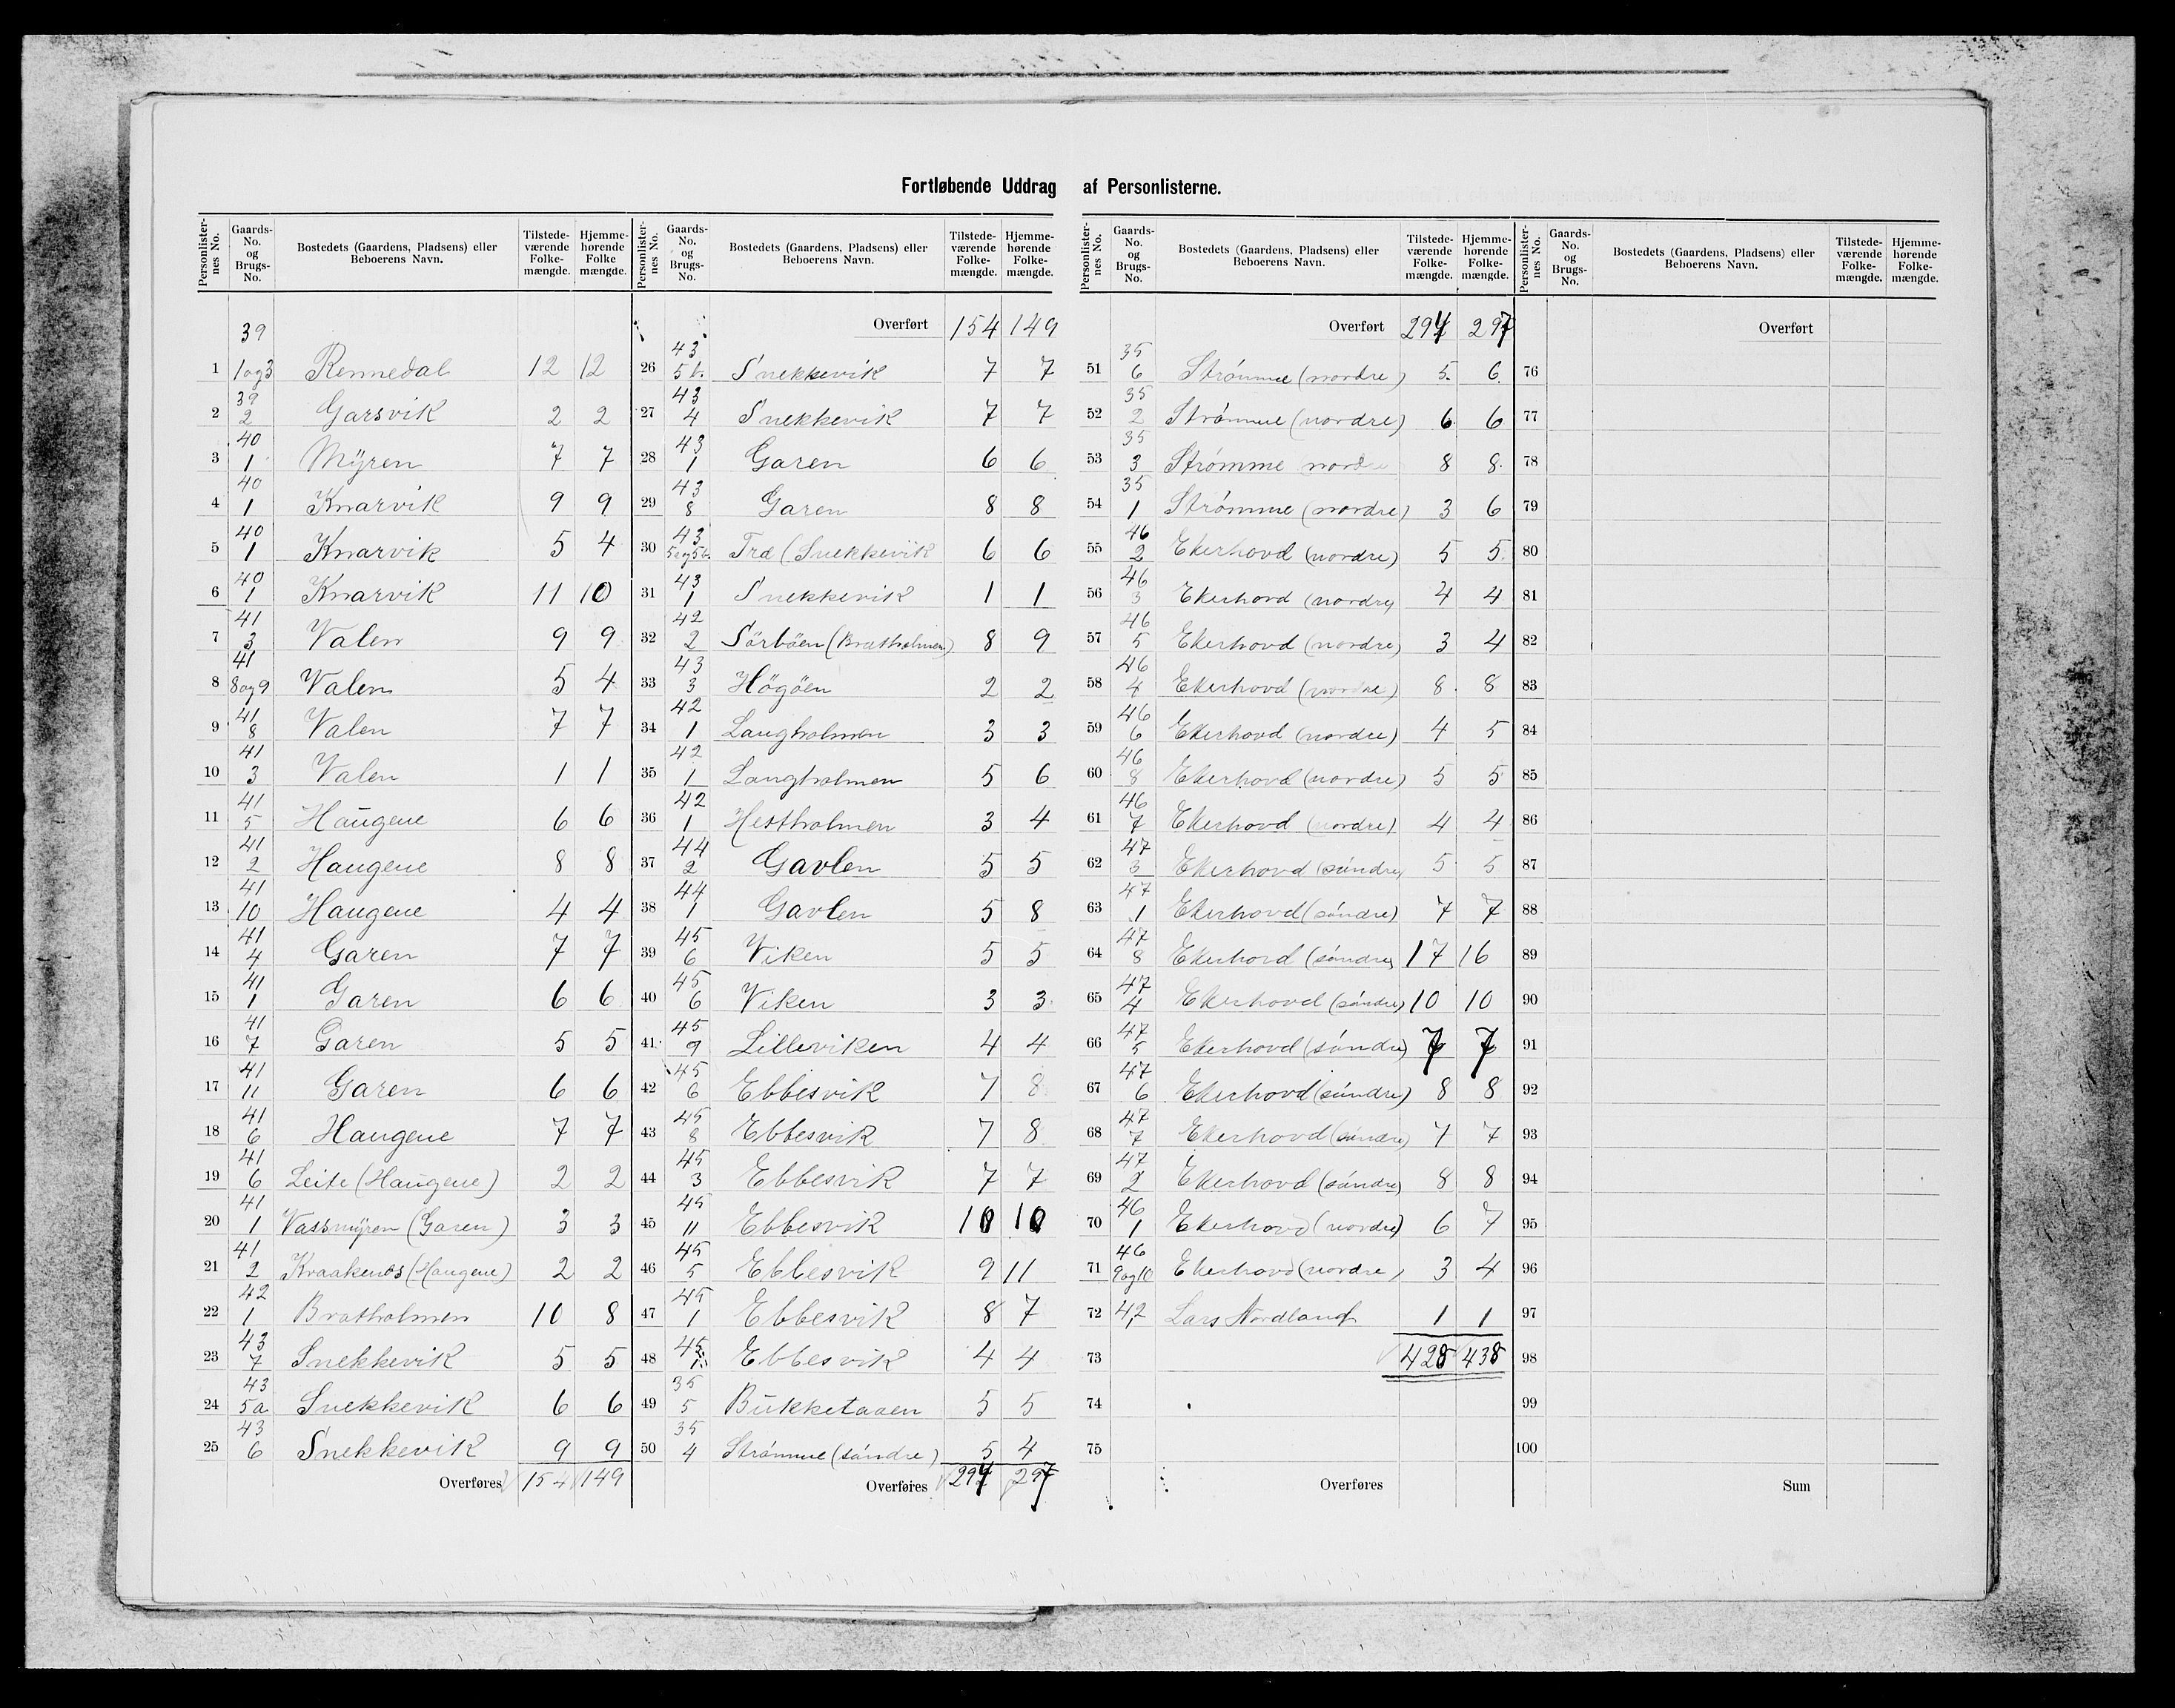 Fortløbende Uddrag af Personlisterne.
Personlister-nes No. | Gaards-No. og Brugs-No. | Bostedets (Gaardens, Pladsens) eller Beboerens Navn. | Tilstede-værende Folke-mængde. | Hjemme-hørende Folke mængde.
39
1 | 1 og 3 | Rennedal | 12 | 12
2 | 39 2 | Garsvik | 2 | 2
3 | 40 1 | Myren | 7 | 7
4 | 40 1 | Knarvik | 9 | 9
5 | 40 1 | Knarvik | 5 | 4
6 | 40 1 | Knarvik | 11 | 10
7 | 41 3 | Valen | 9 | 9
8 | 41 8 og 9 | Valen | 5 | 4
9 | 41 8 | Valen | 7 | 7
10 | 41 3 | Valen | 1 | 1
11 | 41 5 | Haugene | 6 | 6
12 | 41 2 | Haugene | 8 | 8
13 | 41 10 | Haugene | 4 | 4
14 | 41 4 | Garen | 7 | 7
15 | 41 1 | Garen | 6 | 6
16 | 41 7 | Garen | 5 | 5
17 | 41 11 | Garen | 6 | 6
18 | 41 6 | Haugene | 7 | 7
19 | 41 6 | Leite (Haugene) | 2 | 2
20 | 41 1 | Vassmyren (Garen) | 3 | 3
21 | 41 2 | Kraakenes (Haugene) | 2 | 2
22 | 42 1 | Bratholmen | 10 | 8
23 | 43 7 | Snekkevik | 5 | 5
24 | 43 5a | Snekkevik | 6 | 6
25 | 43 6 | Snekkevik | 9 | 9
Overføres | 154 | 149
Personlister-nes No. | Gaards-No. og Brugs-No. | Bostedets (Gaardens, Pladsens) eller Beboerens Navn. | Tilstede-værende Folke-mængde. | Hjemme-hørende Folke-mængde.
Overført | 154 | 149
26 | 43 5b. | Snekkevik | 7 | 7
27 | 43 4 | Snekkevik | 7 | 7
28 | 43 1 | Garen | 6 | 6
29 | 43 8 | Garen | 8 | 8
30 | 43 5a og 5b. | Træ (Snekkevik | 6 | 6
31 | 43 1 | Snekkevik | 1 | 1
32 | 42 2 | Sörböen (Bratholmen) | 8 | 9
33 | 43 3 | Högöen | 2 | 2
34 | 42 1 | Langholmen | 3 | 3
35 | 42 1 | Langholmen | 5 | 6
36 | 42 1 | Hestholmen | 3 | 4
37 | 44 2 | Gavlen | 5 | 5
38 | 44 1 | Gavlen | 5 | 8
39 | 45 6 | Viken | 5 | 5
40 | 45 6 | Viken | 3 | 3
41 | 45 9 | Lilleviken | 4 | 4
42 | 45 6 | Ebbesvik | 7 | 8
43 | 45 8 | Ebbesvik | 7 | 8
44 | 45 3 | Ebbesvik | 7 | 7
45 | 45 11 | Ebbesvik | 10 | 10
46 | 45 5 | Ebbesvik | 9 | 11
47 | 45 1 | Ebbesvik | 8 | 7
48 | 45 1 | Ebbesvik | 4 | 4
49 | 35 5 | Bukketaaen | 5 | 5
50 | 35 4 | Strømme (søndre) | 5 | 4
Overføres | 294 | 297
Personlister-nes No. | Gaards-No. og Brugs-No. | Bostedets (Gaardens, Pladsens) eller Beboerens Navn. | Tilstede-værende Folke-mængde. | Hjemme-hørende Folke-mængde.
Overført | 294 | 297
51 | 35 6 | Strømme (nordre) | 5. | 6.
52 | 35 2 | Strømme (nordre) | 6 | 6
53 | 35 3 | Strømme nordre | 8 | 8.
54 | 35 1 | Strømme (nordre) | 3 | 6
55 | 46 2 | Ekerhovd (nordre) | 5 | 5
56 | 46 3 | Ekerhovd (nordre) | 4 | 4
57 | 46 5 | Ekerhovd (nordre) | 3 | 4
58 | 46 4 | Ekerhovd (nordre) | 8 | 8
59 | 46 6 | Ekerhovd (nordre) | 4 | 5
60 | 46 8 | Ekerhovd (nordre) | 5 | 5
61 | 46 7 | Ekerhovd (nordre) | 4 | 4
62 | 47 3 | Ekerhovd (søndre) | 5 | 5
63 | 47 1 | Ekerhovd (søndre) | 7 | 7
64 | 47 8 | Ekerhovd (søndre) | 17 | 16
65 | 47 4 | Ekerhovd (søndre) | 10 | 10
66 | 47 5 | Ekerhovd (søndre) | 7 | 7
67 | 47 6 | Ekerhovd (søndre) | 8 | 8
68 | 47 7 | Ekerhovd (søndre) | 7 | 7
69 | 47 2 | Ekerhovd (søndre) | 8 | 8
70 | 46 1 | Ekerhovd (nordre) | 6 | 7
71 | 46 9 og 10 | Ekerhovd (nordre) | 3 | 4
72 | 42 | Lars Nordland | 1 | 1
73 | 428 | 438
74
75
Overføres
Personlister-nes No. | Gaards-No. og Brugs-No. | Bostedets (Gaardens, Pladsens) eller Beboerens Navn. | Tilstede-værende Folke-mængde. | Hjemme-hørende Folke-mængde.
Overført
76
77
78
79
80
81
82
83
84
85
86
87
88
89
90
91
92
93
94
95
96
97
98
99
100
Sum